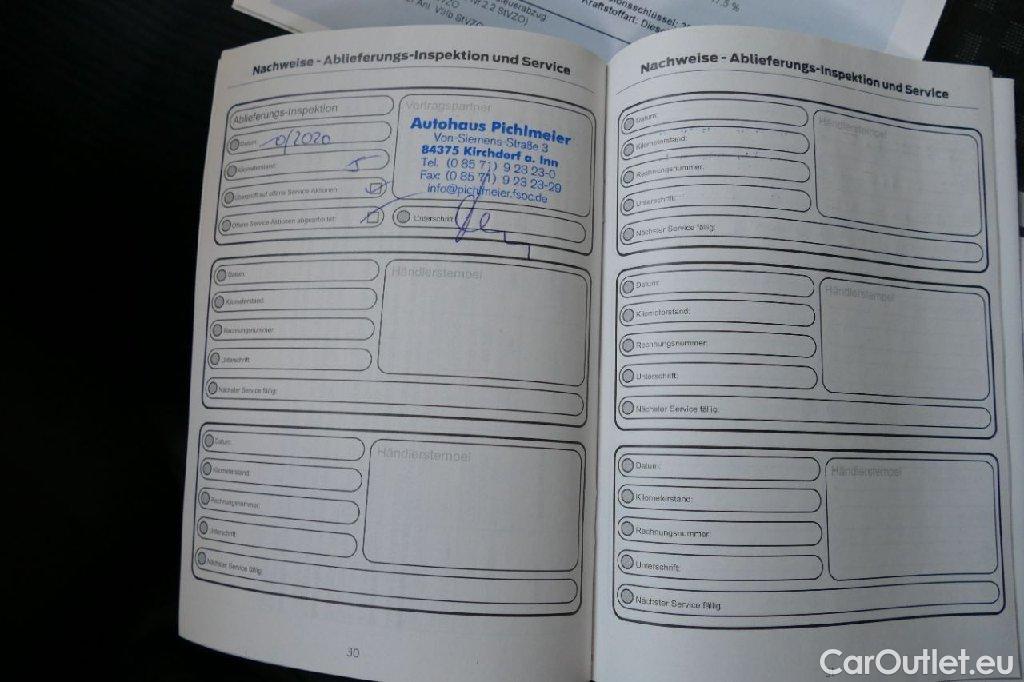 Kraftstoffart: Diese
Nachweise - Ablieferungs-Inspektion und Service
Ablieferungs-Inspektion
Datum:
0/2020
Kilometerstand:
5
Überprüft auf offene Service Aktionen:
Offene Service Aktionen abgearbeitet:
Vertragspartner
Autohaus Pichlmeier
Von-Siemens-Straße 3
84375 Kirchdorf a. Inn
Tel. (0 85 71) 9 23 23-0
Fax: (0 85 71) 9 23 23-29
info@pichlmeier.fsoc.de
Unterschrift:
Datum:
Kilometerstand:
Rechnungsnummer:
Unterschrift:
Nächster Service fällig:
Händlerstempel
Datum:
Kilometerstand:
Rechnungsnummer:
Unterschrift:
Nächster Service fällig:
Händlerstempel
30
Nachweise - Ablieferungs-Inspektion und Service
Datum:
Kilometerstand:
Rechnungsnummer:
Unterschrift:
Nächster Service fällig:
Händlerstempel
Datum:
Kilometerstand:
Rechnungsnummer:
Unterschrift:
Nächster Service fällig:
Händlerstempel
Datum:
Kilometerstand:
Rechnungsnummer:
Unterschrift:
Nächster Service fällig:
Händlerstempel
CarOutlet.eu